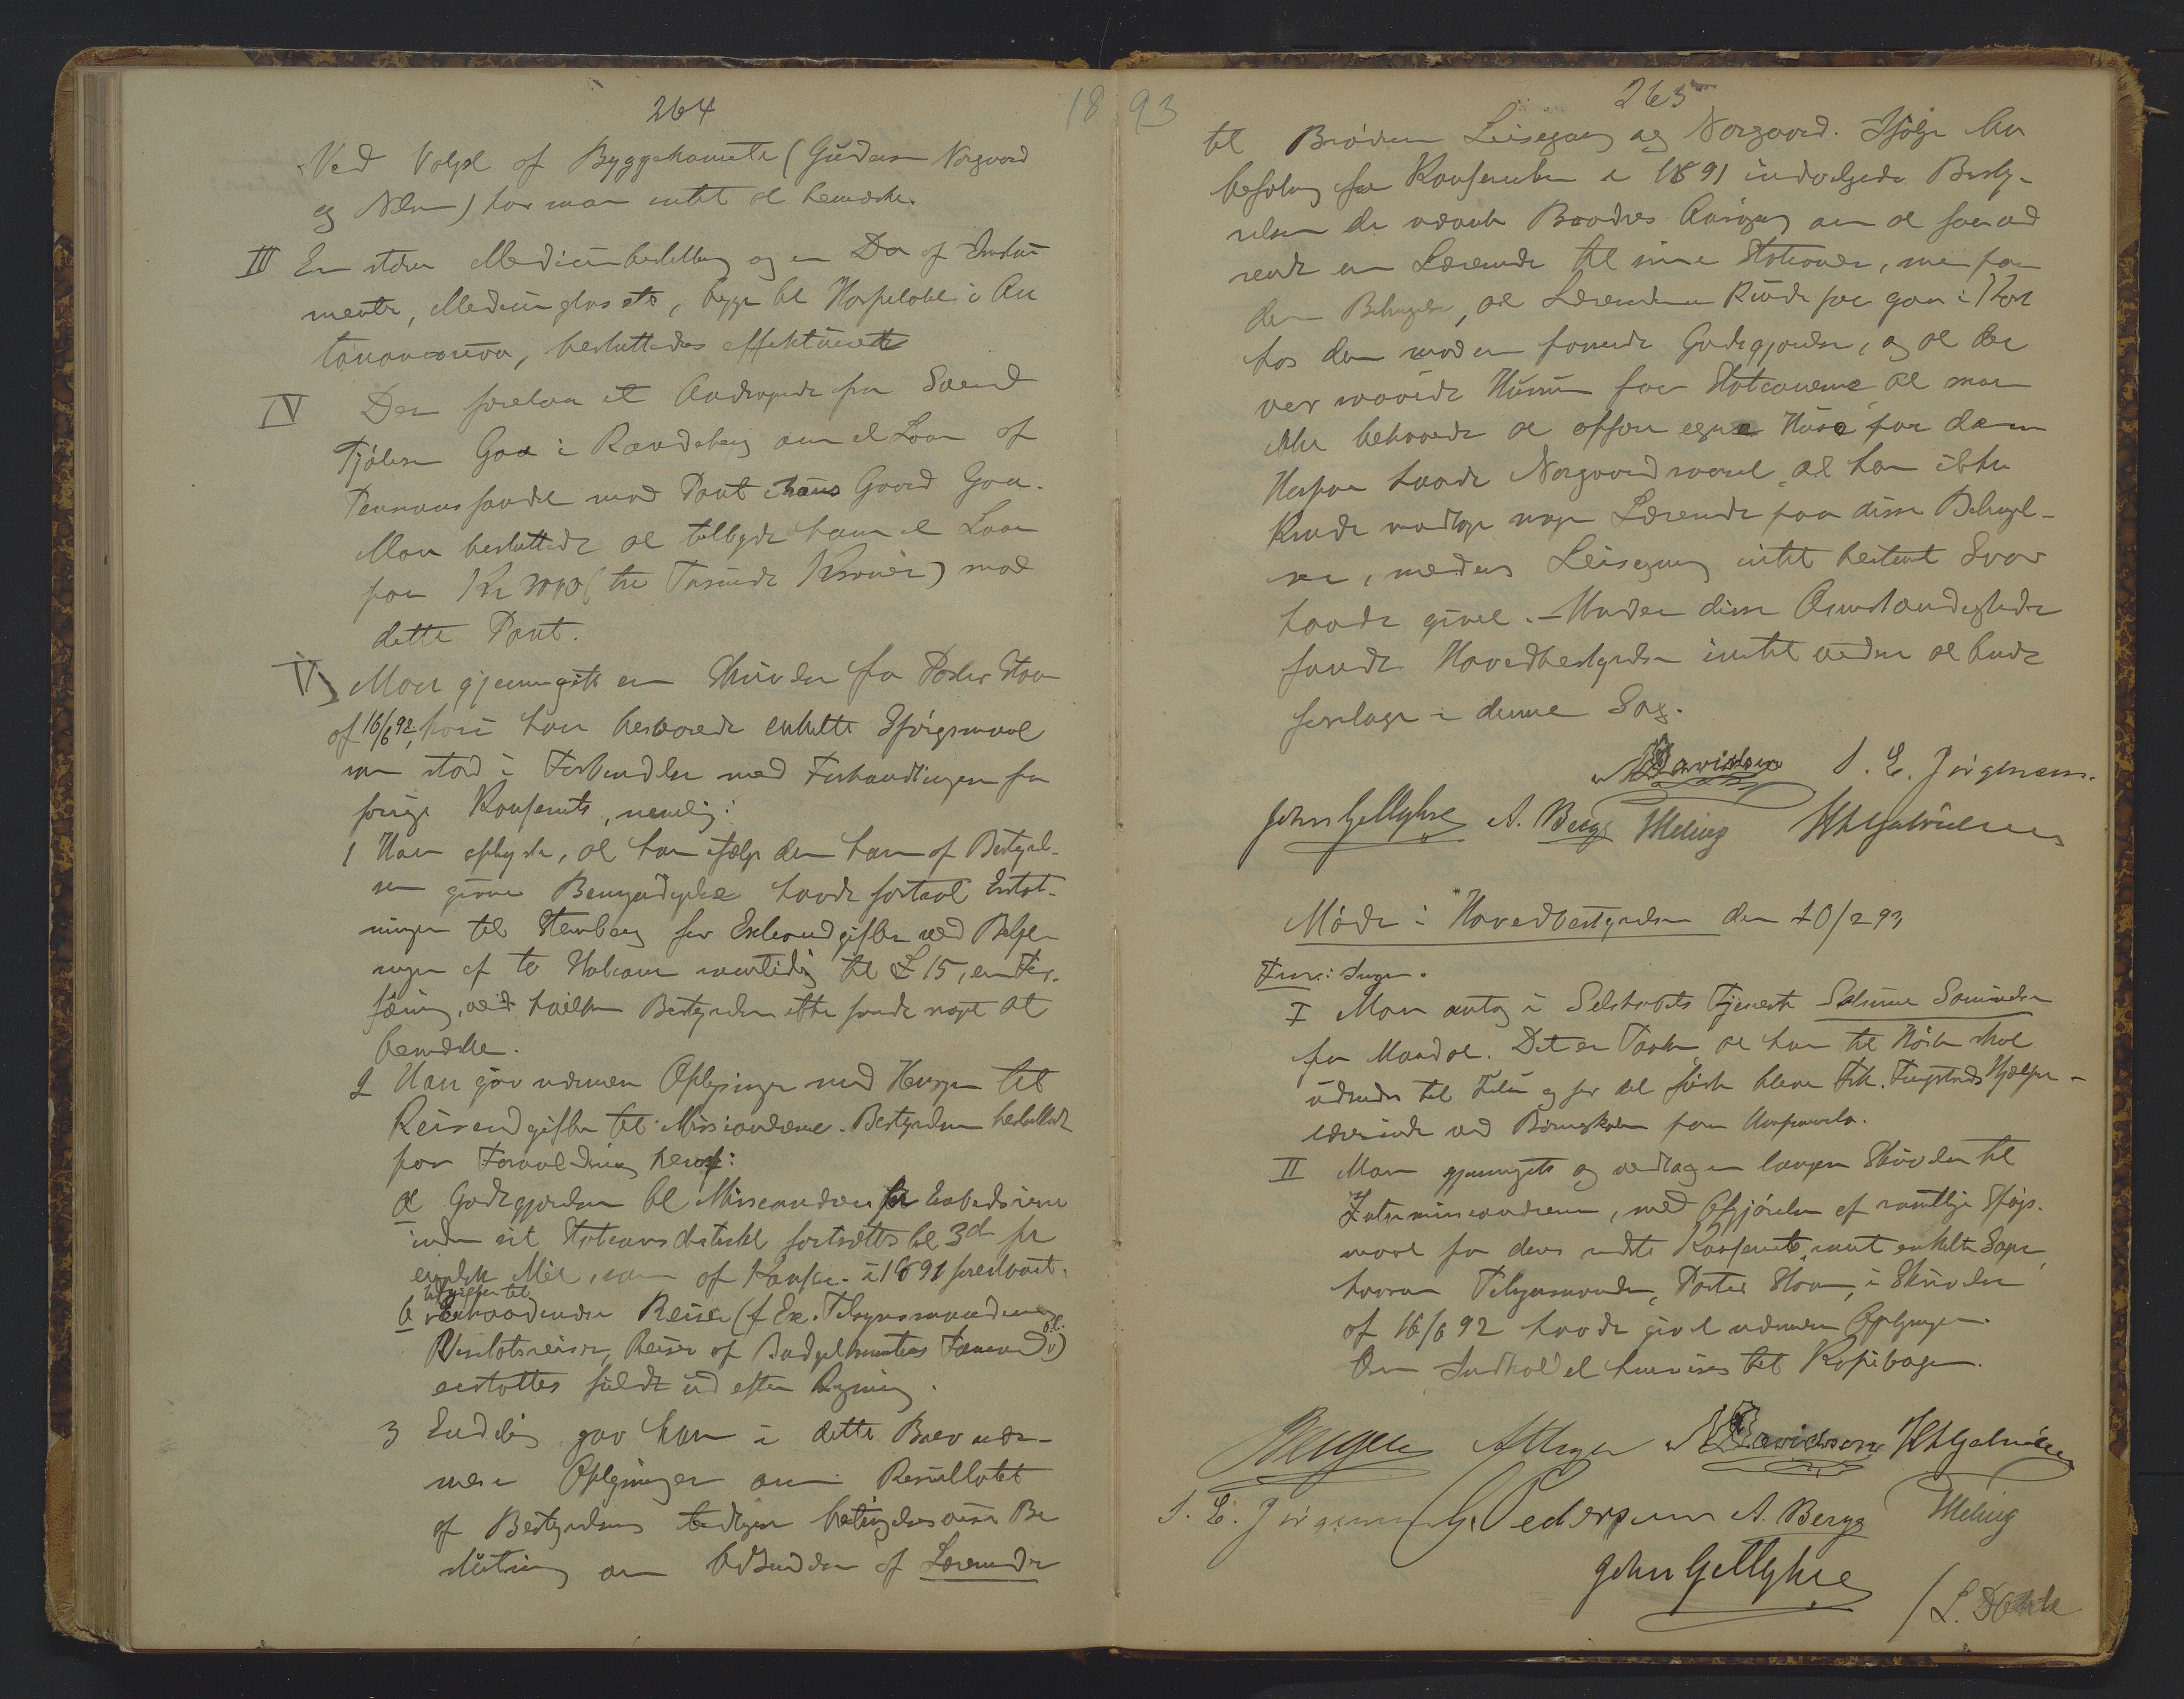 264
Ved Valget af Byggekomite (Gudersen Norgaard
og Nilsen) har man intet at bemærke.
III En større Medicinbestilling og en Do af Instru
menter, Medicinglas etc, begge til Hospitalet i An
tananarivo, besluttedes effektueret
IV Der forelaa et Andragende fra Svend
Tjølsen Goa i Randeberg om et Laan af
Pensionsfondet mod Pant i hans Gaard Goa.
Man besluttede at tilbyde ham et Laan
paa Kr 3000 (tre Tusinde Kroner) mod
dette Pant.
V) Man gjennemgik en Skrivelse fra Pastor Stavem
af 16/6 92, hvori han besvarede enkelte Spørgsmaal
som stod i Forbindelse med Forhandlingen fra
forrige Konferents, nemlig:
1 Han oplyste, at han ifølge den ham af Bestyrel-
sen givne Bemyndigelse havde fastsat Erstat-
ningen til Stenberg for Extraudgifter ved Betje-
ningen af to Stationer samtidig til £ 15, en For-
føining, ved hvilken Bestyrelsen ikke fandt noget at
bemærke.
2 Han gav nærmere Oplysninger med Hensyn til
Reiseudgifter til Missionærerne. Bestyrelsen besluttede
paa Foranledning heraf:
a Godtgjørelsen til Missionærer for Embedsreiser
inden sit Stationsdistrikt fortsættes til 3d pr
engelsk Mil, som af Konfer. i 1891 foreslaaet.
b Udgifter til
extraordinære Reiser (f. Ex. Tilsynsmandens
Visitatsreiser, Reiser af Budgetkomiteens Formand o.l.)
erstattes fuldt ud efter Regning.
3 Endelig gav han i dette Brev nær-
mere Oplysninger om Resultatet
af Bestyrelsens tidligere betingelsesvise Be
slutning om Udsendelse af Lærerinder
18 93
265
til Brødrene Leisegang og Norgaard. Ifølge An
befaling fra Konferentsen i 1891 indvilgede Besty-
relsen de nævnte Brødres Ansøgning om at faa ud
sendt en Lærerinde til sine Stationer, men paa
den Betingelse, at Lærerinden kunde faa gaa i Kost
hos dem mod en passende Godtgjørelse, og at der
var saavidt Husrum paa Stationerne, at man
ikke behøvede at opføre egne Huse for dem
Herpaa havde Norgaard svaret, at han ikke
kunde modtage nogen Lærerinde paa disse Betingel-
ser, medens Leisegang intet bestemt Svar
havde givet. – Under disse Omstændigheder
fandt Hovedbestyrelsen intet videre at burde
foretage i denne Sag.
N Davidsen S. E. Jørgensen.
John Gjettghre A. Berge Meling
Møde i Hovedbestyrelsen den 10/2 93
Frav: Ingen.
I Man antog i Selskabets Tjeneste
fra Mandal. Det er Tanken, at hun til Høsten skal
udsendes til Zulu og for det første blive Frk. Hjælpe-
lærerinde ved Børneskolen paa Umpumulo.
II Man gjennemgik og vedtog en længere Skrivelse til
Zulumissionærerne, med Afgjørelse af samtlige Spørgs-
maal fra deres sidste Konferents, samt enkelte Sager,
hvorom Tilsynsmanden, Pastor Stavem, i Skrivelse
af 16/6 92 havde givet nærmere Oplysninger.
Om Indholdet henvises til Kopibogen.
N Davidsen
S. E. Jørgensen Pedersen A. Berge Meling
John Gjettghre
/L. Dahle